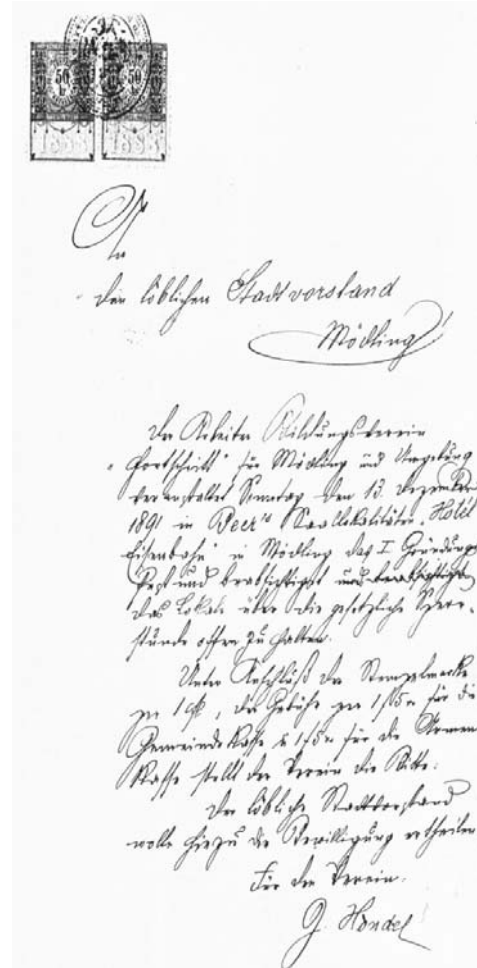 50 50
1888 1888
An
den löblichen Stadtvorstand
Mödling!
Der Arbeiter Bildungsverein
„Fortschritt“ für Mödling und Umgebung
veranstaltet Sonntag den 13. Dezember
1891 in Beer's Saallokalitäten „Hotel
Eisenbahn“ in Mödling das I. Gründungs
Fest und beabsichtigt und beabsichtigt
das Lokale über die gesetzliche Sperr-
stunde offen zu halten.
Unter Anschluß der Stempelmarke
per 1 , der Gebühr per 1 für die
Gemeinde Kasse u für die Armen
Kasse stellt der Verein die Bitte:
Der löbliche Stadtvorstand
wolle hiezu die Bewilligung ertheilen
Für den Verein:
G. Hondel